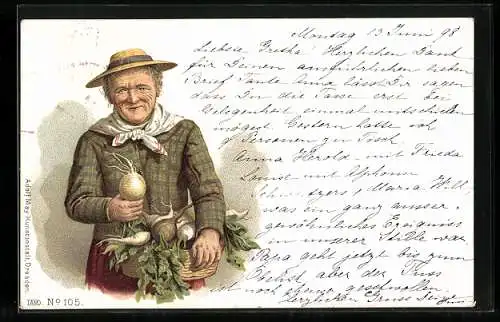 Montag 13 Juni 98
Liebste Gretha! Herzlichen Dank
für Deinen ausführlichen lieben
Brief Tante Anna lässt Dir sagen
dass Du die Tasse erst bei
Gelegenheit einmal
mögest. Gestern hatte
9 Personen zu Tisch
Anna Herold mit Frieda
Louise mit Alphons
Maria Will
was ein ganz ausser-
gewöhnliches Ereigniss
in unserer Stille war
Papa geht jetzt bis zum
aber der Fuss
ist noch geschwollen
Herzlichen Gruss Deine
Adolf May, Kunstanstalt, Dresden.
TABO. No 105.